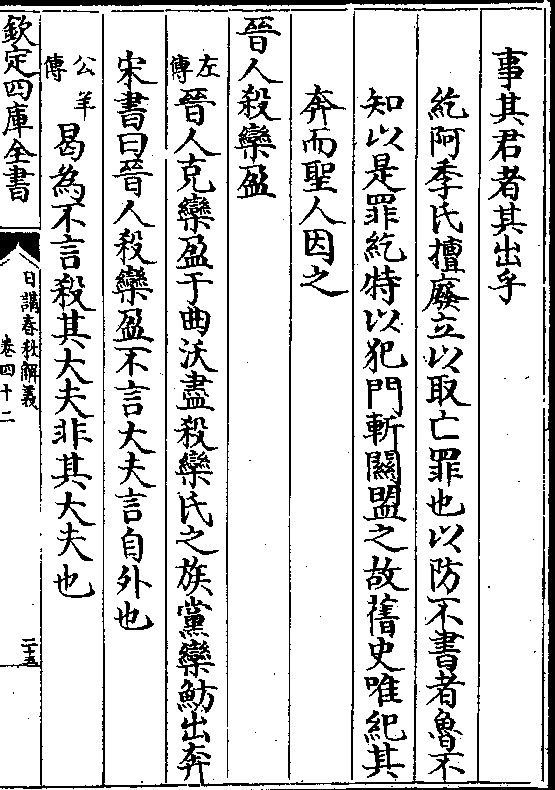 事其君者其出乎
紇阿季氏擅廢立以取亡罪也以防不書者魯不
知以是罪紇特以犯門斬關盟之故舊史唯紀其
奔而聖人因之
晉人殺欒盈
左傳晉人克欒盈于曲沃盡殺欒氏之族黨欒魴出奔
宋書曰晉人殺欒盈不言大夫言自外也
公羊傳曷為不言殺其大夫非其大夫也
欽定四庫全書
日講春秋解義
卷四十二
二十五